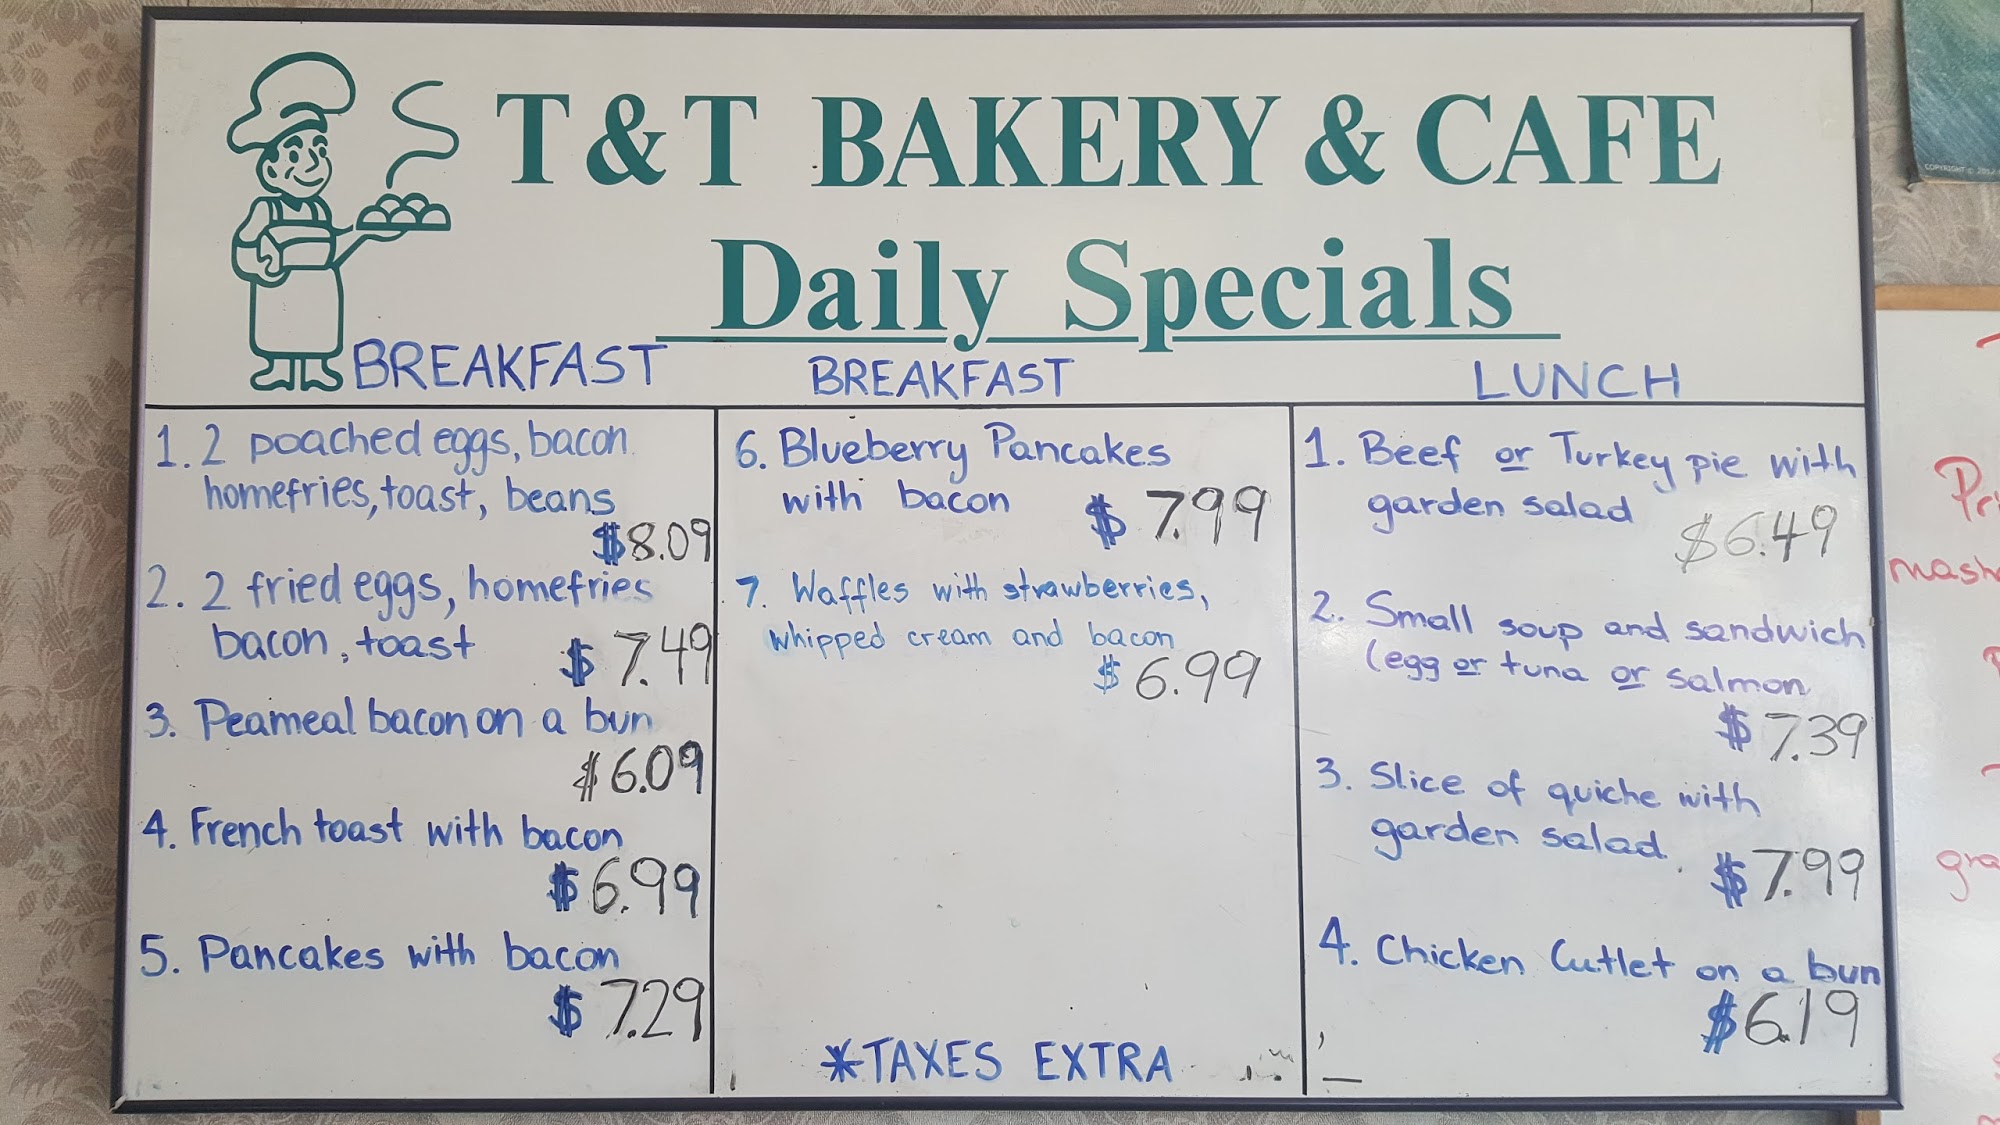 T & T BAKERY & CAFE
Daily Specials
BREAKFAST
1. 2 poached eggs, bacon
homefries, toast, beans
$8.09
2. 2 fried eggs, homefries
bacon, toast
$7.49
3. Peameal bacon on a bun
$6.09
4. French toast with bacon
$6.99
5. Pancakes with bacon
$7.29
BREAKFAST
6. Blueberry Pancakes
with bacon $7.99
7. Waffles with strawberries,
whipped cream and bacon
$6.99
*TAXES EXTRA
LUNCH
1. Beef or Turkey pie with
garden salad $6.49
2. Small soup and sandwich
(egg or tuna or salmon
$7.39
3. Slice of quiche with
garden salad. $7.99
4. Chicken Cutlet on a bun
$6.19
COPYRIGHT ©